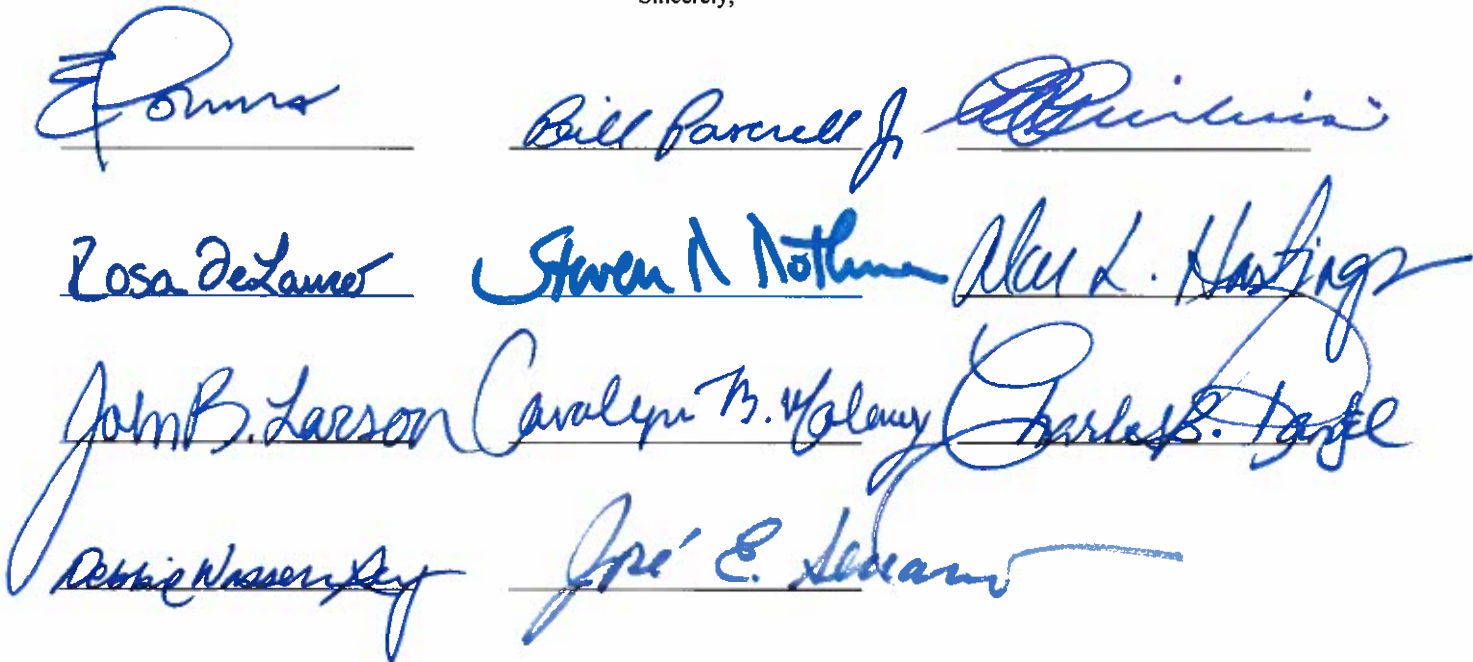 Sincerely,
Bill Pascrell Jr
Rosa DeLauro Steven R Rothman Alcee L. Hastings
John B. Larson Carolyn B. Maloney Charles B. Rangel
Debbie Wasserman José E. Serrano